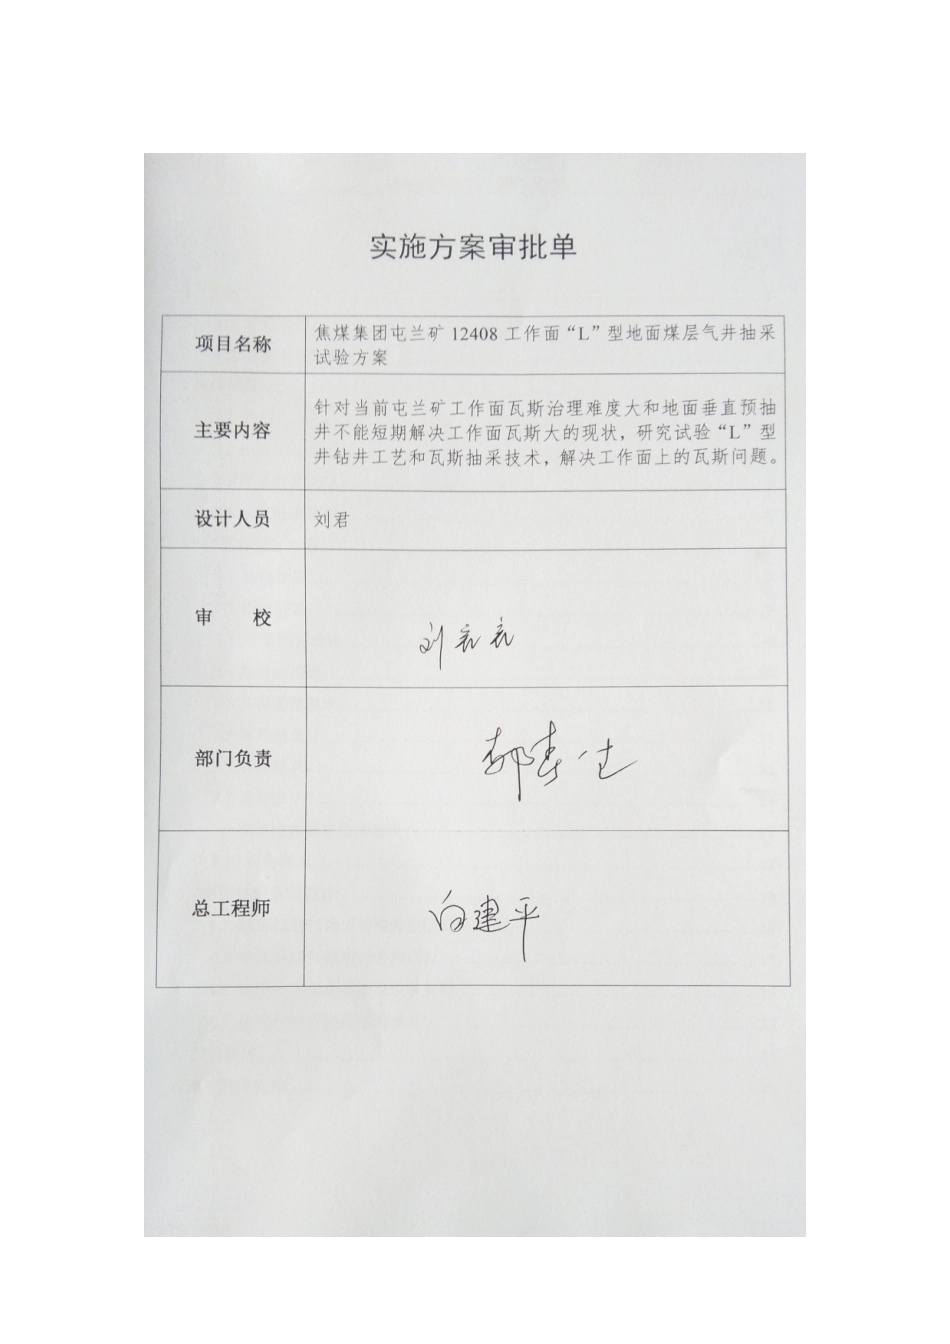 实施方案审批单
项目名称
焦煤集团屯兰矿 12408 工作面“L”型地面煤层气井抽采
试验方案
主要内容
针对当前屯兰矿工作面瓦斯治理难度大和地面垂直预抽
井不能短期解决工作面瓦斯大的现状，研究试验“L”型
井钻井工艺和瓦斯抽采技术，解决工作面上的瓦斯问题。
设计人员
刘君
审 校
刘
部门负责
郭春
总工程师
白建平